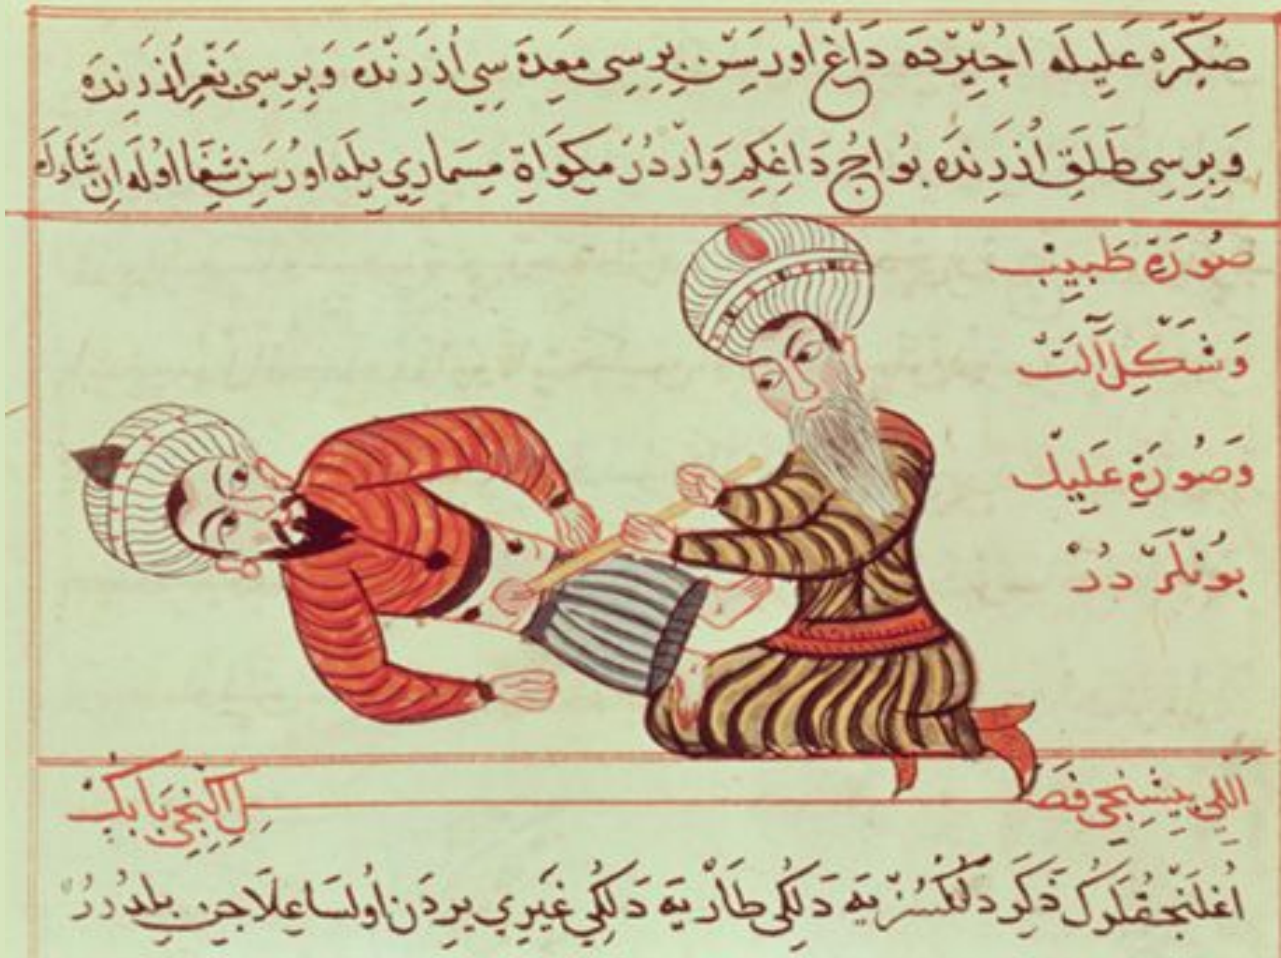 صُكِّرَه عَلِيلَه اُجْيِرْدَه دَاغْ اُورَسِنْ بِرِسِى مَعِدَه سِي اُذَرِنْدَه وَبِرِسِى اُذَرِنْدَه
وَبِرِسِى طَلَقِ اُذَرِنْدَه بُو اُوجُ دَاغِكِم وَارْدُرْ مِكْوَاةِ مِسْمَارِي يِلَه اوُرَسِن شِفَا اوُلَه اِنْ شَاءَ
صُورَةِ طَبِيبْ
وَشَكْلِ آلَتْ
وَصُورَةِ عَلِيلْ
بُونْلَرْ دُرْ
اَللِّي بِيشِنْجِي فَصلِ اِكِنْجِي بَابِكْ
اُغْلَنْجُقْلَرُكْ ذَكَرِ دَلُكْسُزْ يَه دَلُكِى طَارْ يَه دَلُكِى غَيْرِي يِرْدَنْ اُولْسَا عِلَاجِنْ بِلْدُرُرْ